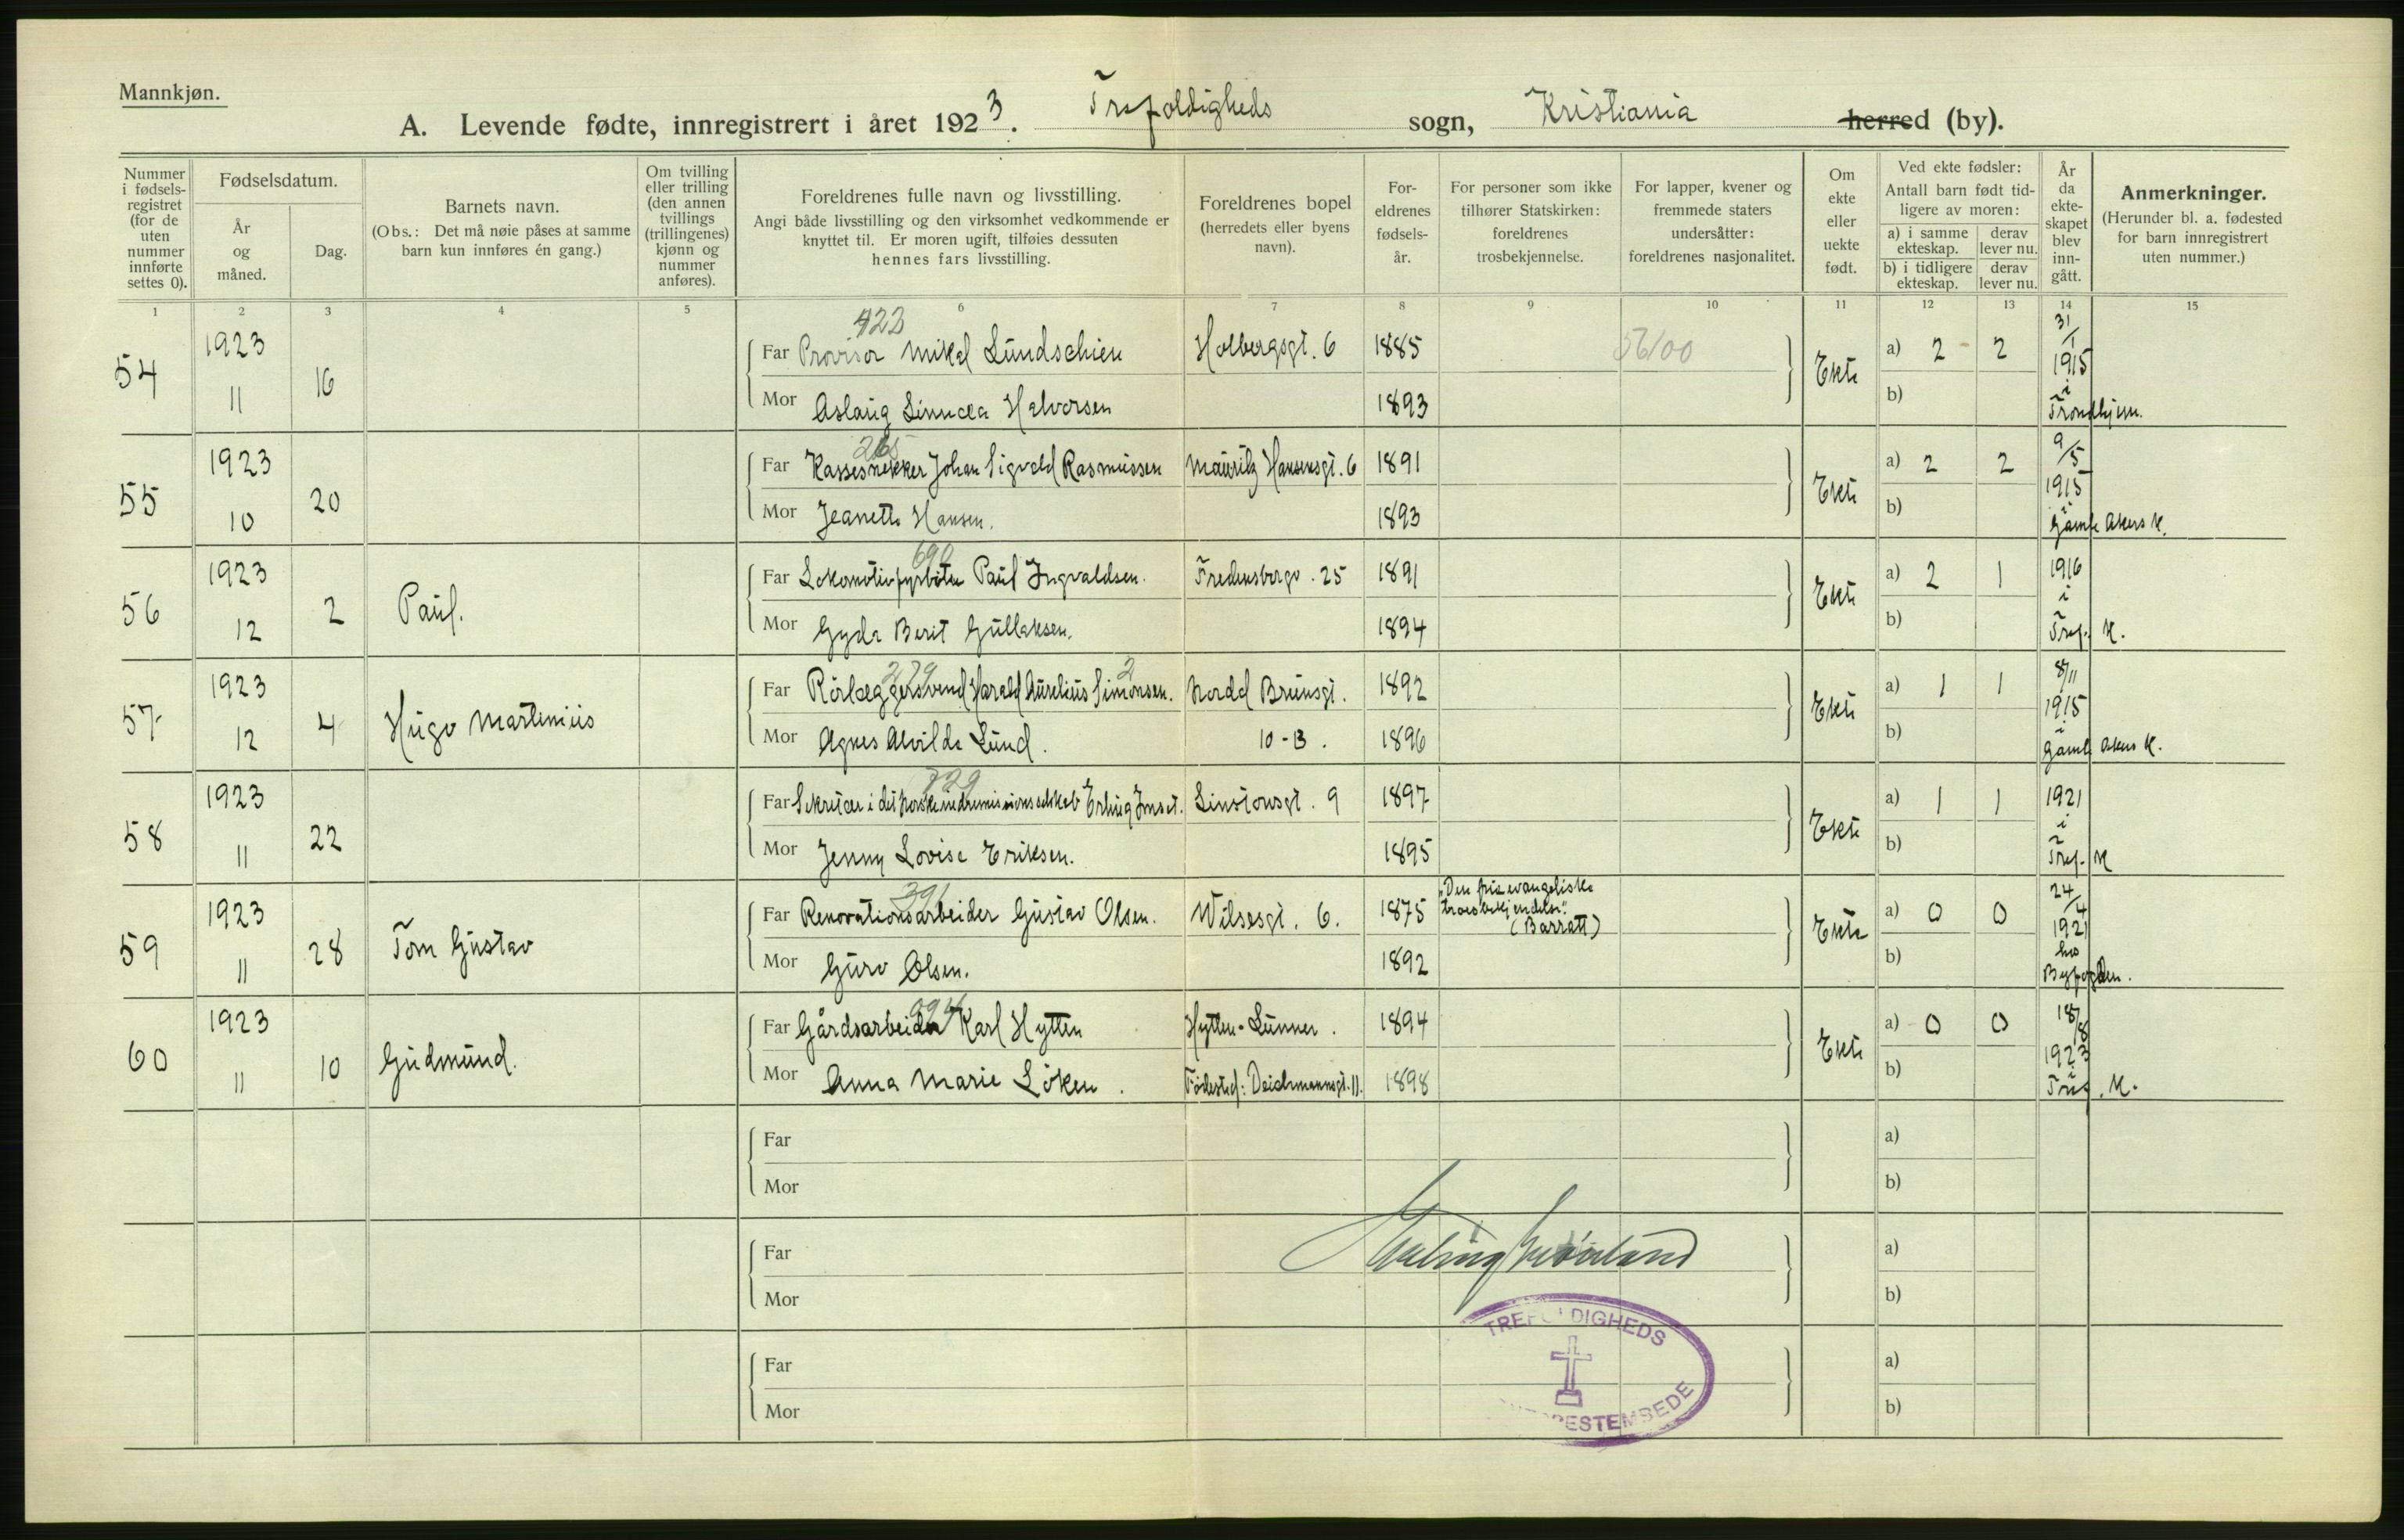 Mannkjøn.
A. Levende fødte, innregistrert i året 1923. Trefoldigheds sogn, Kristiania herred (by).
Nummer i fødsels-registret (for de uten nummer innførte settes 0).
Fødselsdatum.
År og måned.
Dag.
Barnets navn.
(Obs.: Det må nøie påses at samme barn kun innføres én gang.)
Om tvilling eller trilling (den annen tvillings (trillingenes) kjønn og nummer anføres).
Foreldrenes fulle navn og livsstilling.
Angi både livsstilling og den virksomhet vedkommende er knyttet til. Er moren ugift, tilføies dessuten hennes fars livsstilling.
Foreldrenes bopel (herredets eller byens navn).
For-eldrenes fødsels-år.
For personer som ikke tilhører Statskirken: foreldrenes trosbekjennelse.
For lapper, kvener og fremmede staters undersåtter: foreldrenes nasjonalitet.
Om ekte eller uekte født.
Ved ekte fødsler:
Antall barn født tid-ligere av moren:
a) i samme ekteskap. derav lever nu.
b) i tidligere ekteskap. derav lever nu.
År da ekte-skapet blev inn-gått.
Anmerkninger.
(Herunder bl. a. fødested for barn innregistrert uten nummer.)
1 2 3 4 5 6 7 8 9 10 11 12 13 14 15
422
54 1923 11 16 Far Provisor Mikal Lundschien Holbergsgt. 6 1885 56100 Ekte a) 2 2 31/1 1915 i Trondhjem.
Mor Aslaug Linnæa Halvorsen 1893 b)
265
55 1923 10 20 Far Kassesnekker Johan Sigvald Rasmussen Mauritz Hansensgt. 6 1891 Ekte a) 2 2 9/5 1915 i Gamle Akers K.
Mor Jeanette Hansen. 1893 b)
690
56 1923 12 2 Paul. Far Lokomotivfyrbøter Paul Ingvaldsen. Fredensborgv. 25 1891 Ekte a) 2 1 1916 i Tref. K.
Mor Gyda Berit Gullaksen. 1894 b)
279 2
57 1923 12 4 Hugo Martinius Far Rörlæggersvend Harald Aurelius Simonsen. Nordal Brunsgt. 1892 Ekte a) 1 1 8/11 1915 i Gamle Akers K.
Mor Agnes Alvilde Lund. 10-B. 1896 b)
729
58 1923 11 22 Far Sekretær i det norske indremissionsselskab Erling Imset. Linstowsgt. 9 1897 Ekte a) 1 1 1921 i Tref. K
Mor Jenny Lovise Eriksen. 1895 b)
391
59 1923 11 28 Tom Gustav Far Renovationsarbeider Gustav Olsen. Wilsesgt. 6. 1875 "Den frie evangeliske troesbekjendelse". (Barratt) Ekte a) 0 0 24/4 1921 hos Byfogden.
Mor Guro Olsen. 1892 b)
60 1923 11 10 Gudmund. Far Gårdsarbeider Karl Hytten Hytten-Lunner. 1894 Ekte a) 0 0 18/8 1923 i Tref. K.
Mor Anna Marie Löken. Födested: Deichmannsgt. 11. 1898 b)
Far a)
Mor b)
Far a)
Mor b)
Far a)
Mor b)
TREFOLDIGHEDS